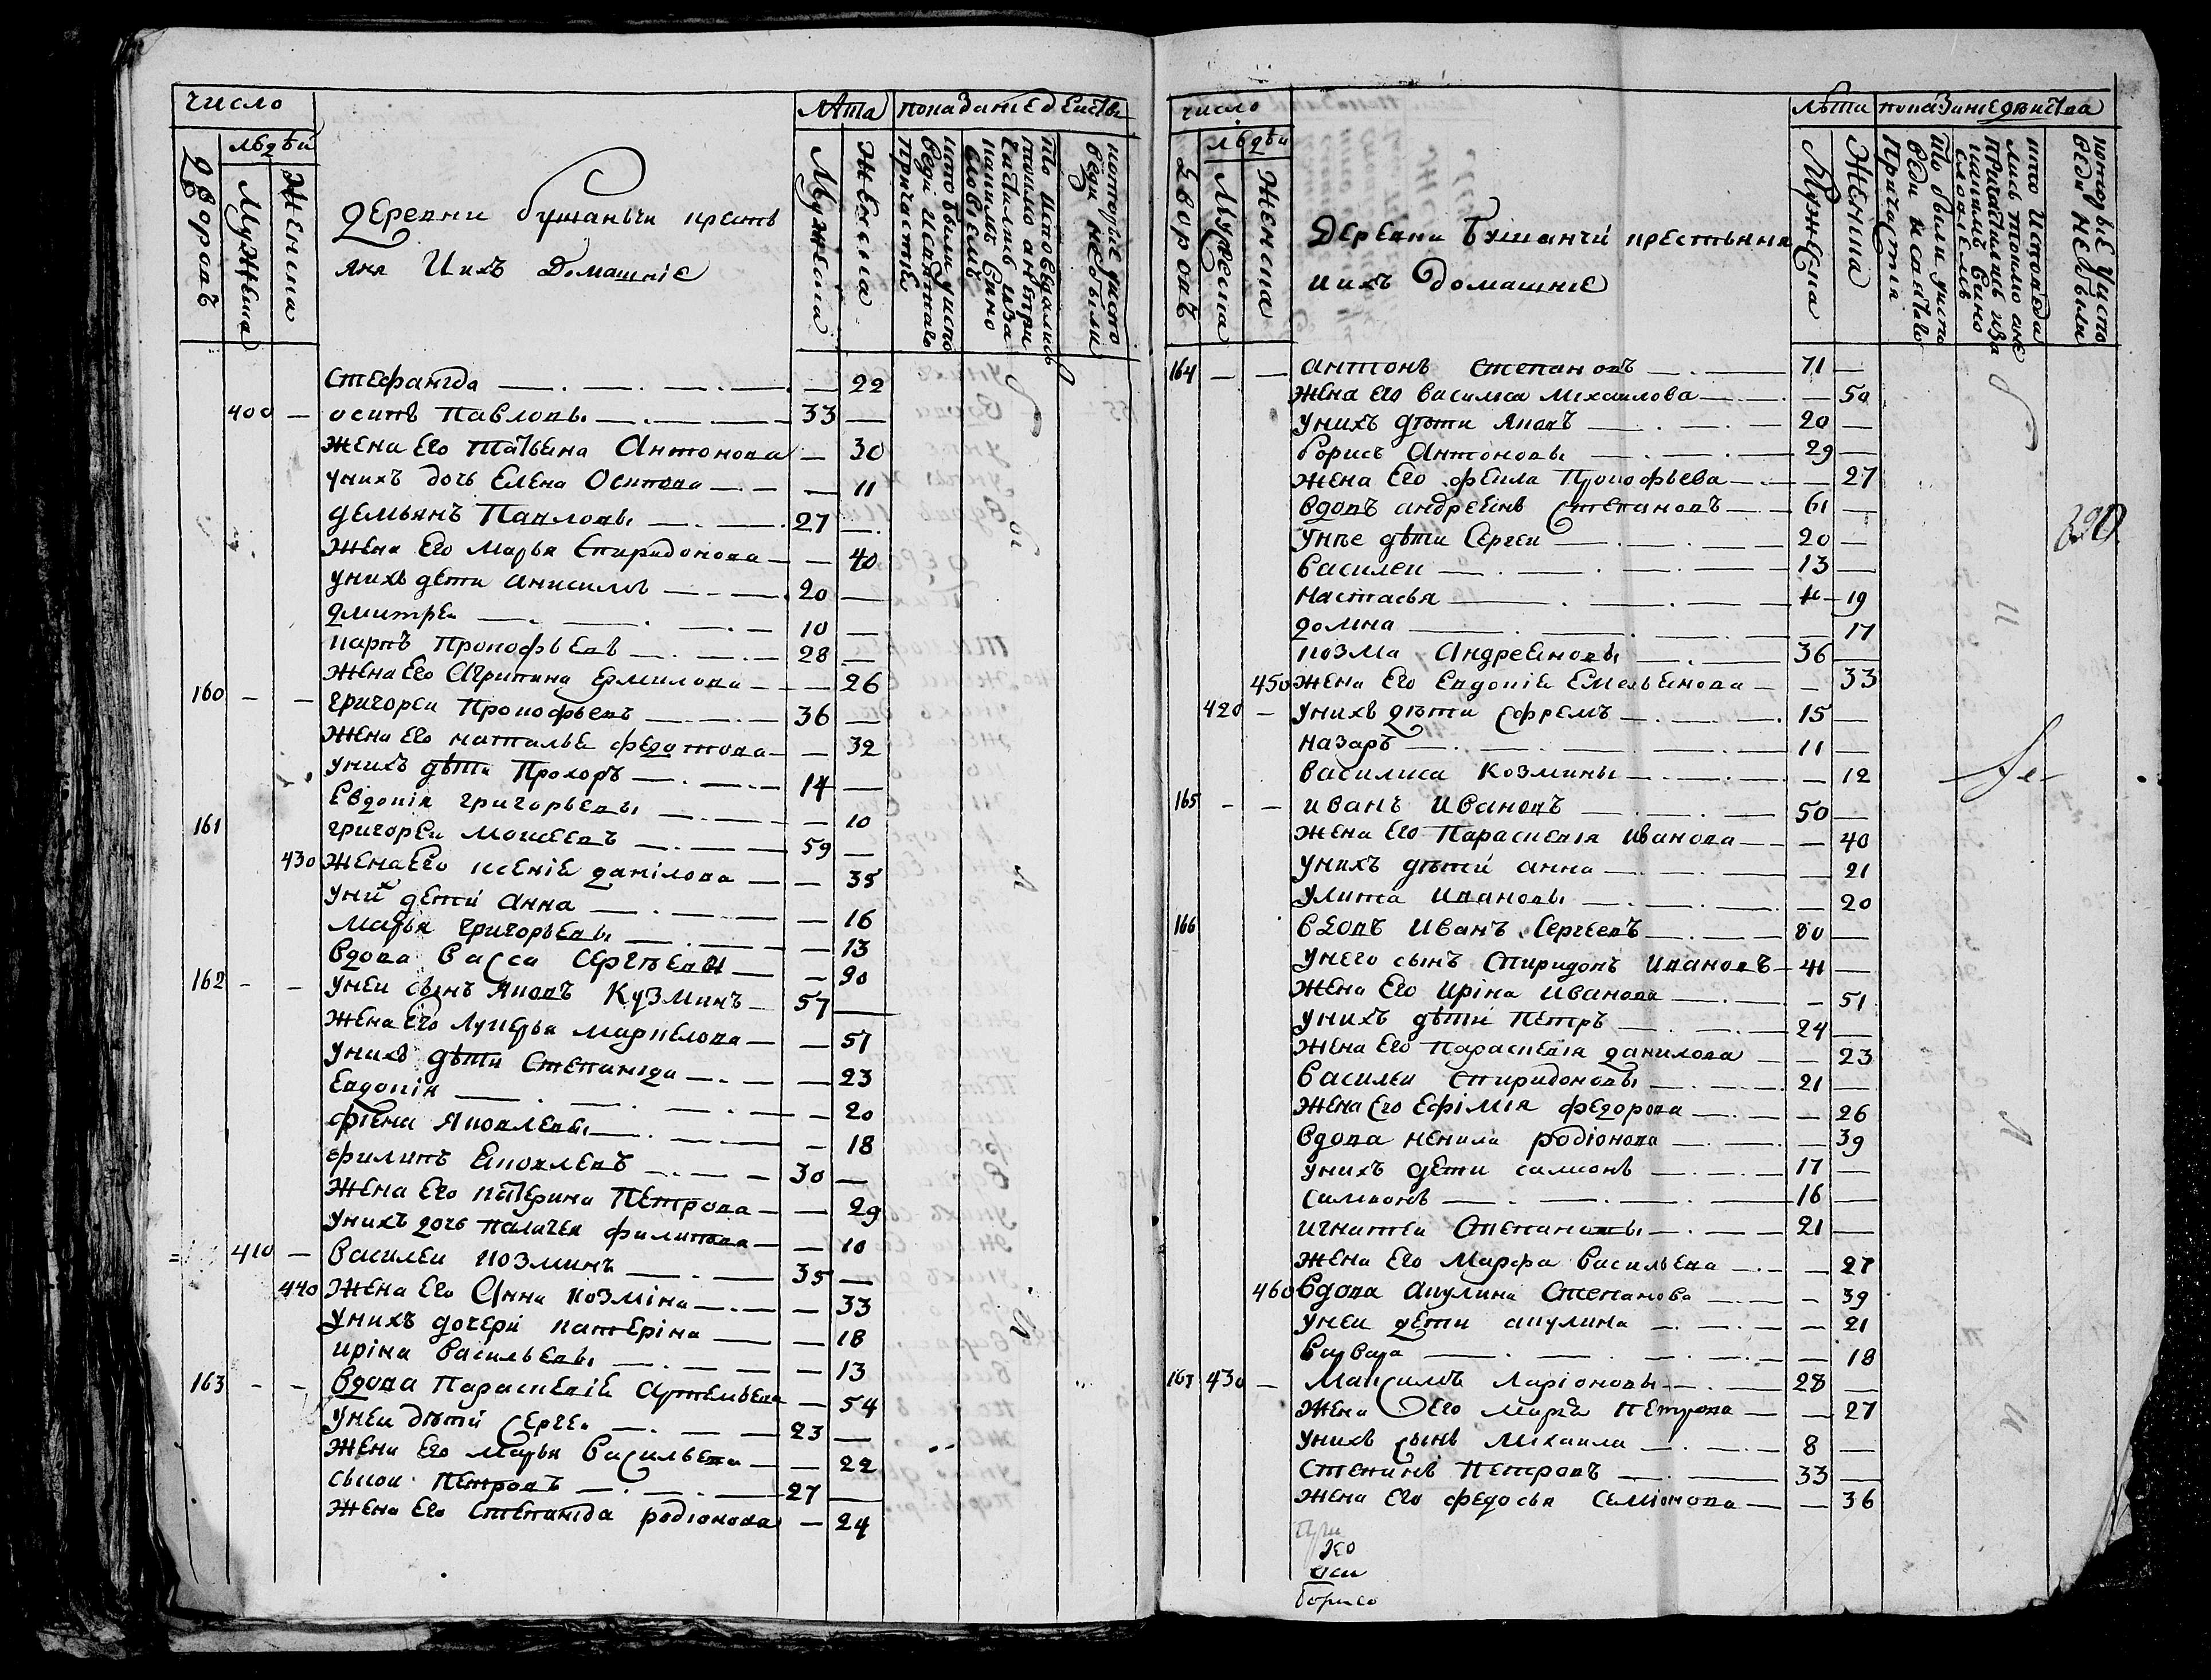 число
лѣта показание действа
людѣй
дворовъ
Мужеска
Женска
деревни бушаньчи кресть
яне Иихъ Домашніе
Мужеска
Женска
кто были уиспо
веди исвятаго
Причастіе
кто исповедались
токмо анепри
чаcтились изa
каким вино
словіемъ
которые уиспо
веди небыли
Стефанида — 22
400 — осипъ Павловы — 33
жена Его Татьяна Антонова — 30
унихъ дочь Елена Осипова — 11
демьянъ Павловы — 27
Жена Его Марья Спиридонова — 40
унихъ дети анисимъ — 20
дмитреи — 10
карпъ Прокофьевъ — 28
Жена Его Агрипина Ермилова — 26
160 — — григореи Прокофьевъ — 36
Жена Его наталья федотова — 32
унихъ дѣти Прохоръ — 14
Евдокія григорьевы — 10
161 григореи Мосеевъ — 59
430 Жена Его ксеніе данілова — 35
уних детй Анна — 16
марья григорьевы — 13
вдова васса сергѣевы — 90
162 — — унеи сынъ Яковъ Кузминъ — 57
Жена Его Лукерья маркелова — 51
унихъ дѣти Степанида — 23
Евдокія — 20
фіена Яковлевы — 18
филипъ Яковлевъ — 30
Жена Его катерина Петрова — 29
унихъ дочь палагея филипова — 10
410 — василеи козминъ — 35
440 Жена Его Анна козміна — 33
унихъ дочери катеріна — 18
иріна васильевы — 13
163 — — вдова Параскевіе Артемьева — 54
унеи дѣтй Сергеи — 23
жена Его марья васильева — 22
Петровъ — 27
Жена Его Степанида родіонова — 24
число
лѣта показание действа
людѣй
дворовъ
Мужеска
Женска
Деревни Бушанчи крестьяня
иихъ домашніе
Мужеска
Женска
кто были уиспо
веди исвятаго
Причастія
кто Исповеда
лись токмо ане
причастились иза
каким вино
словіемъ
которые уиспо
веди небыли
390
164 — — антонъ степановъ — 71
Жена его василиса михаилова — 50
унихъ дѣти Яковъ — 20
борисъ Антоновы — 29
жена Его фекла Прокофьева — 27
вдовъ андреянъ степановъ — 61
дѣти Сергеи — 20
василеи — 13
настасья — 19
домна — 17
козма Андреяновы — 36
450 Жена Его Евдокіе Емельянова — 33
420 — унихъ дѣти ефремъ — 15
назаръ — 11
василиса козмины — 12
165 — — иванъ ивановъ — 50
жена Его Параскевія иванова — 40
унихъ дѣтй анна — 21
улита ивановы — 20
166 вдовъ иванъ Сергеевъ — 80
унего сынъ спиридонъ ивановъ — 41
жена Его иріна иванова — 51
унихъ дѣти Петръ — 24
Жена Его Параскевія данилова — 23
василеи спиридоновы — 21
Жена Его Ефімія федорова — 26
вдова ненила родіонова — 39
унихъ дети самсонъ — 17
симионъ — 16
игнатеи Степановы — 21
жена Его Марфа васильева — 27
460 вдова акулина степанова — 39
унеи дети акулина — 21
варвара — 18
167 430 — Максимъ Ларіоновы — 28
жена Его марья Петрова — 27
унихъ сынъ михаила — 8
Петровъ — 33
жена Его федосья семіонова — 36